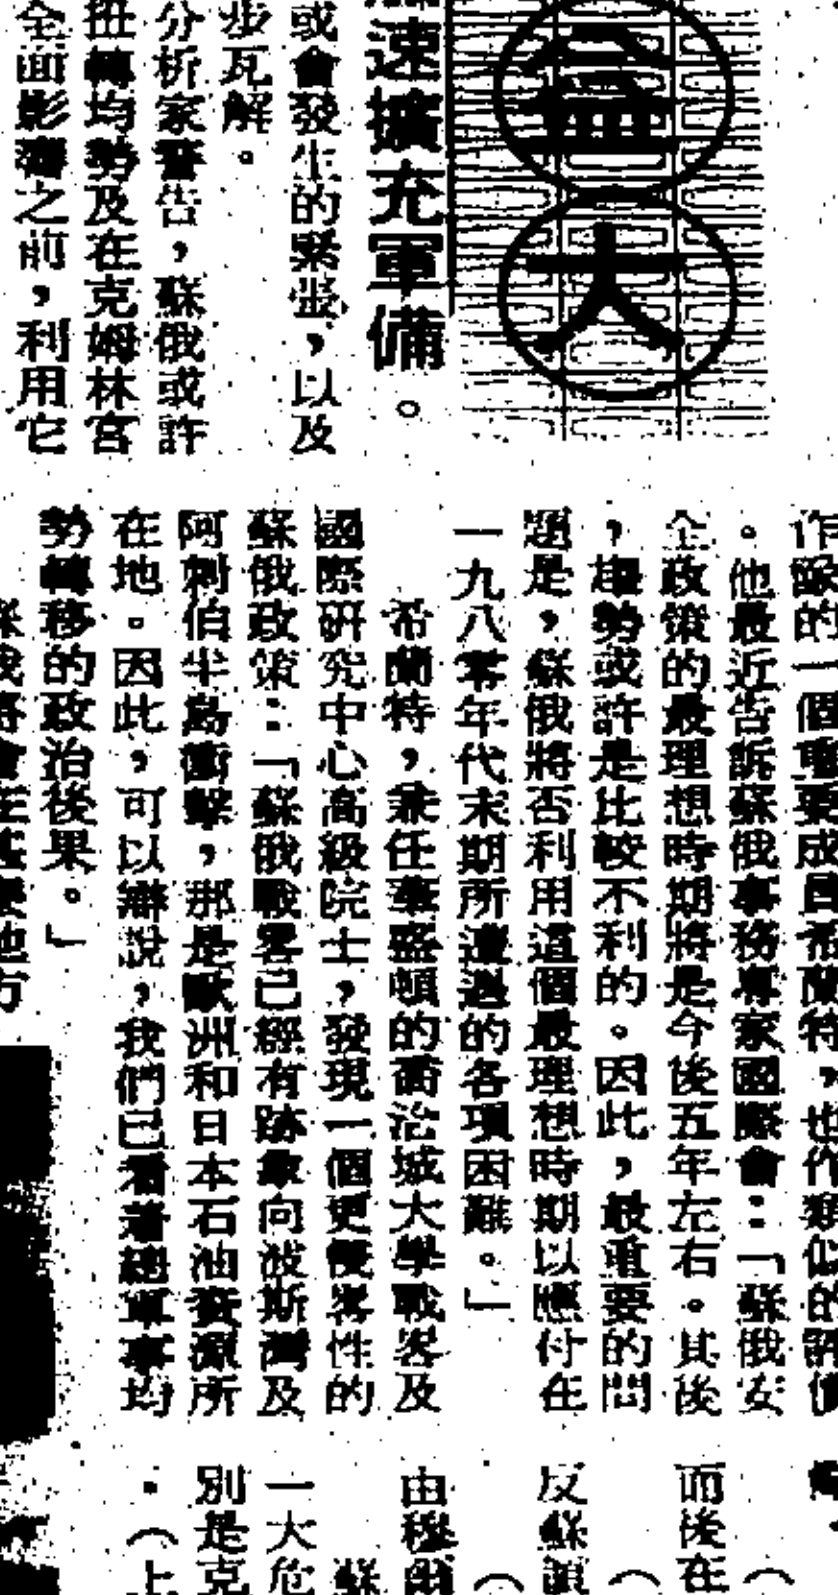 益大
速擴充軍備。
或會發生的緊張,以及
步瓦解。
分析家警告,蘇俄或許
扭轉均勢及在克姆林宮
全面影響之前,利用它
作級的一個重要成員希蘭特,也作類似的評價
。他最近告訴蘇俄事務專家國際會:「蘇俄安
全政策的最理想時期將是今後五年左右。其後
,趨勢或許是比較不利的。因此,最重要的問
題是,蘇俄將否利用這個最理想時期以應付在
一九八零年代末期所遭遇的各項困難。」
希蘭特,兼任華盛頓的喬治城大學戰畧及
國際研究中心高級院士,發現一個更侵畧性的
蘇俄政策:「蘇俄戰畧已經有跡象向波斯灣及
阿剌伯半島衝擊,那是歐洲和日本石油資源所
在地。因此,可以辯說,我們已看著總軍事均
勢轉移的政治後果。」
蘇俄將會在甚麼地方
而後在
反蘇
由穆爾
蘇
一大危
別是克
。(上